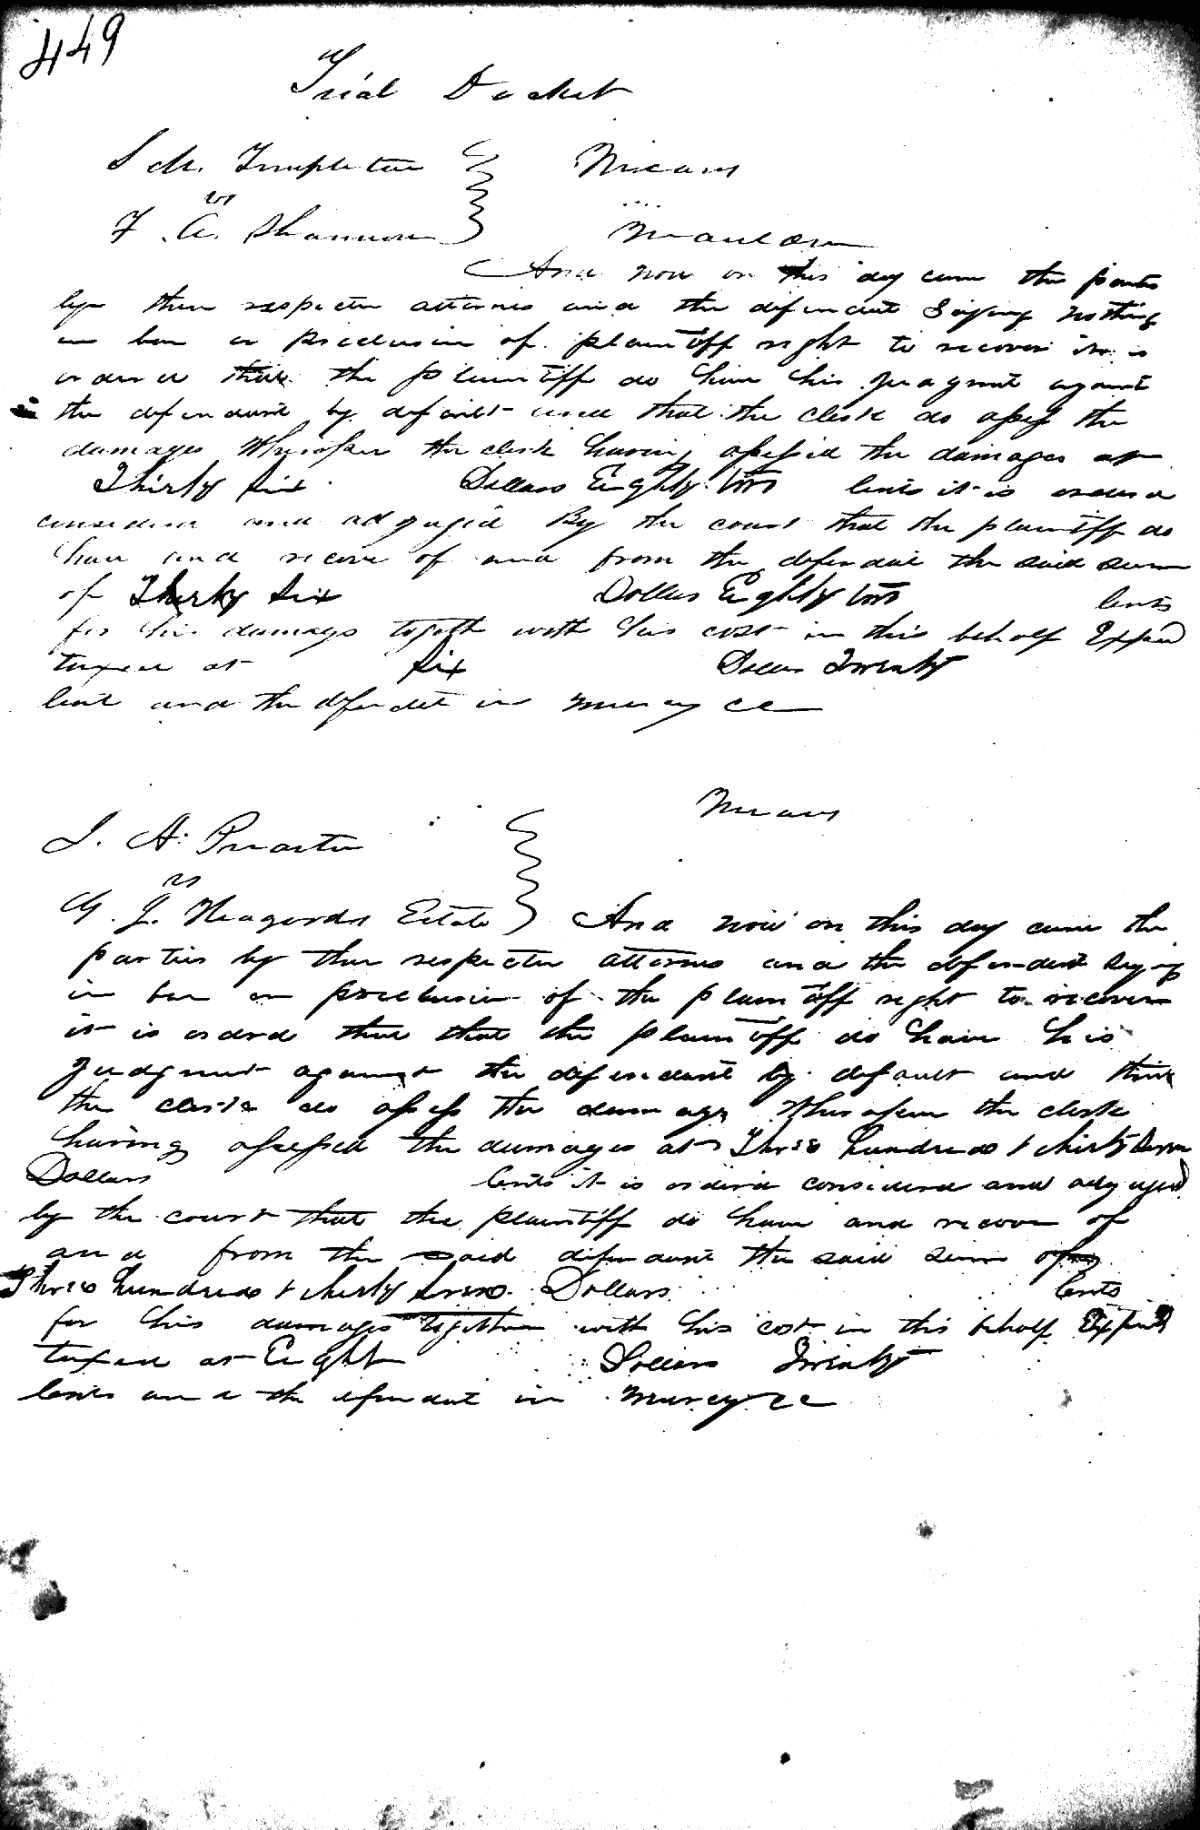 449
Trial Docket
S M. Templeton
vs
F. A. Shannon
And now on this day came the parties
by their respective attorneys and the defendant saying nothing
in bar or preclusion of plaintiff right to recover it is
ordered that the plaintiff do have his judgment against
the defendant by default and that the clerk do assess the
damages Whereupon the clerk having assessed the damages at
Thirty Six Dollars Eighty two Cents it is ordered
considered and adjudged By the court that the plaintiff do
have and recover of and from the defendant the said sum
of Thirty Six Dollars Eighty two Cents
for his damages together with his cost in this behalf Expended
taxed at Six Dollars Twenty
Cents and the defendant in mercy &c
Means
J. A. Proctor
vs
G. J. Estate And now on this day came the
parties by their respective attorneys and the defendant saying
in bar or preclusion of the plaintiff right to recover
it is ordered that that the plaintiff do have his
Judgment against the defendant by default and that
the clerk do assess the damages Whereupon the clerk
having assessed the damages at Three hundred & thirty seven
Dollars Cents it is ordered considered and adjudged
by the court that the plaintiff do have and recover of
and from the said defendant the said sum of
Three hundred & thirty seven Dollars Cents
for his damages together with his cost in this behalf Expended
taxed at Eight Dollars Twenty
Cents and the defendant in mercy &c